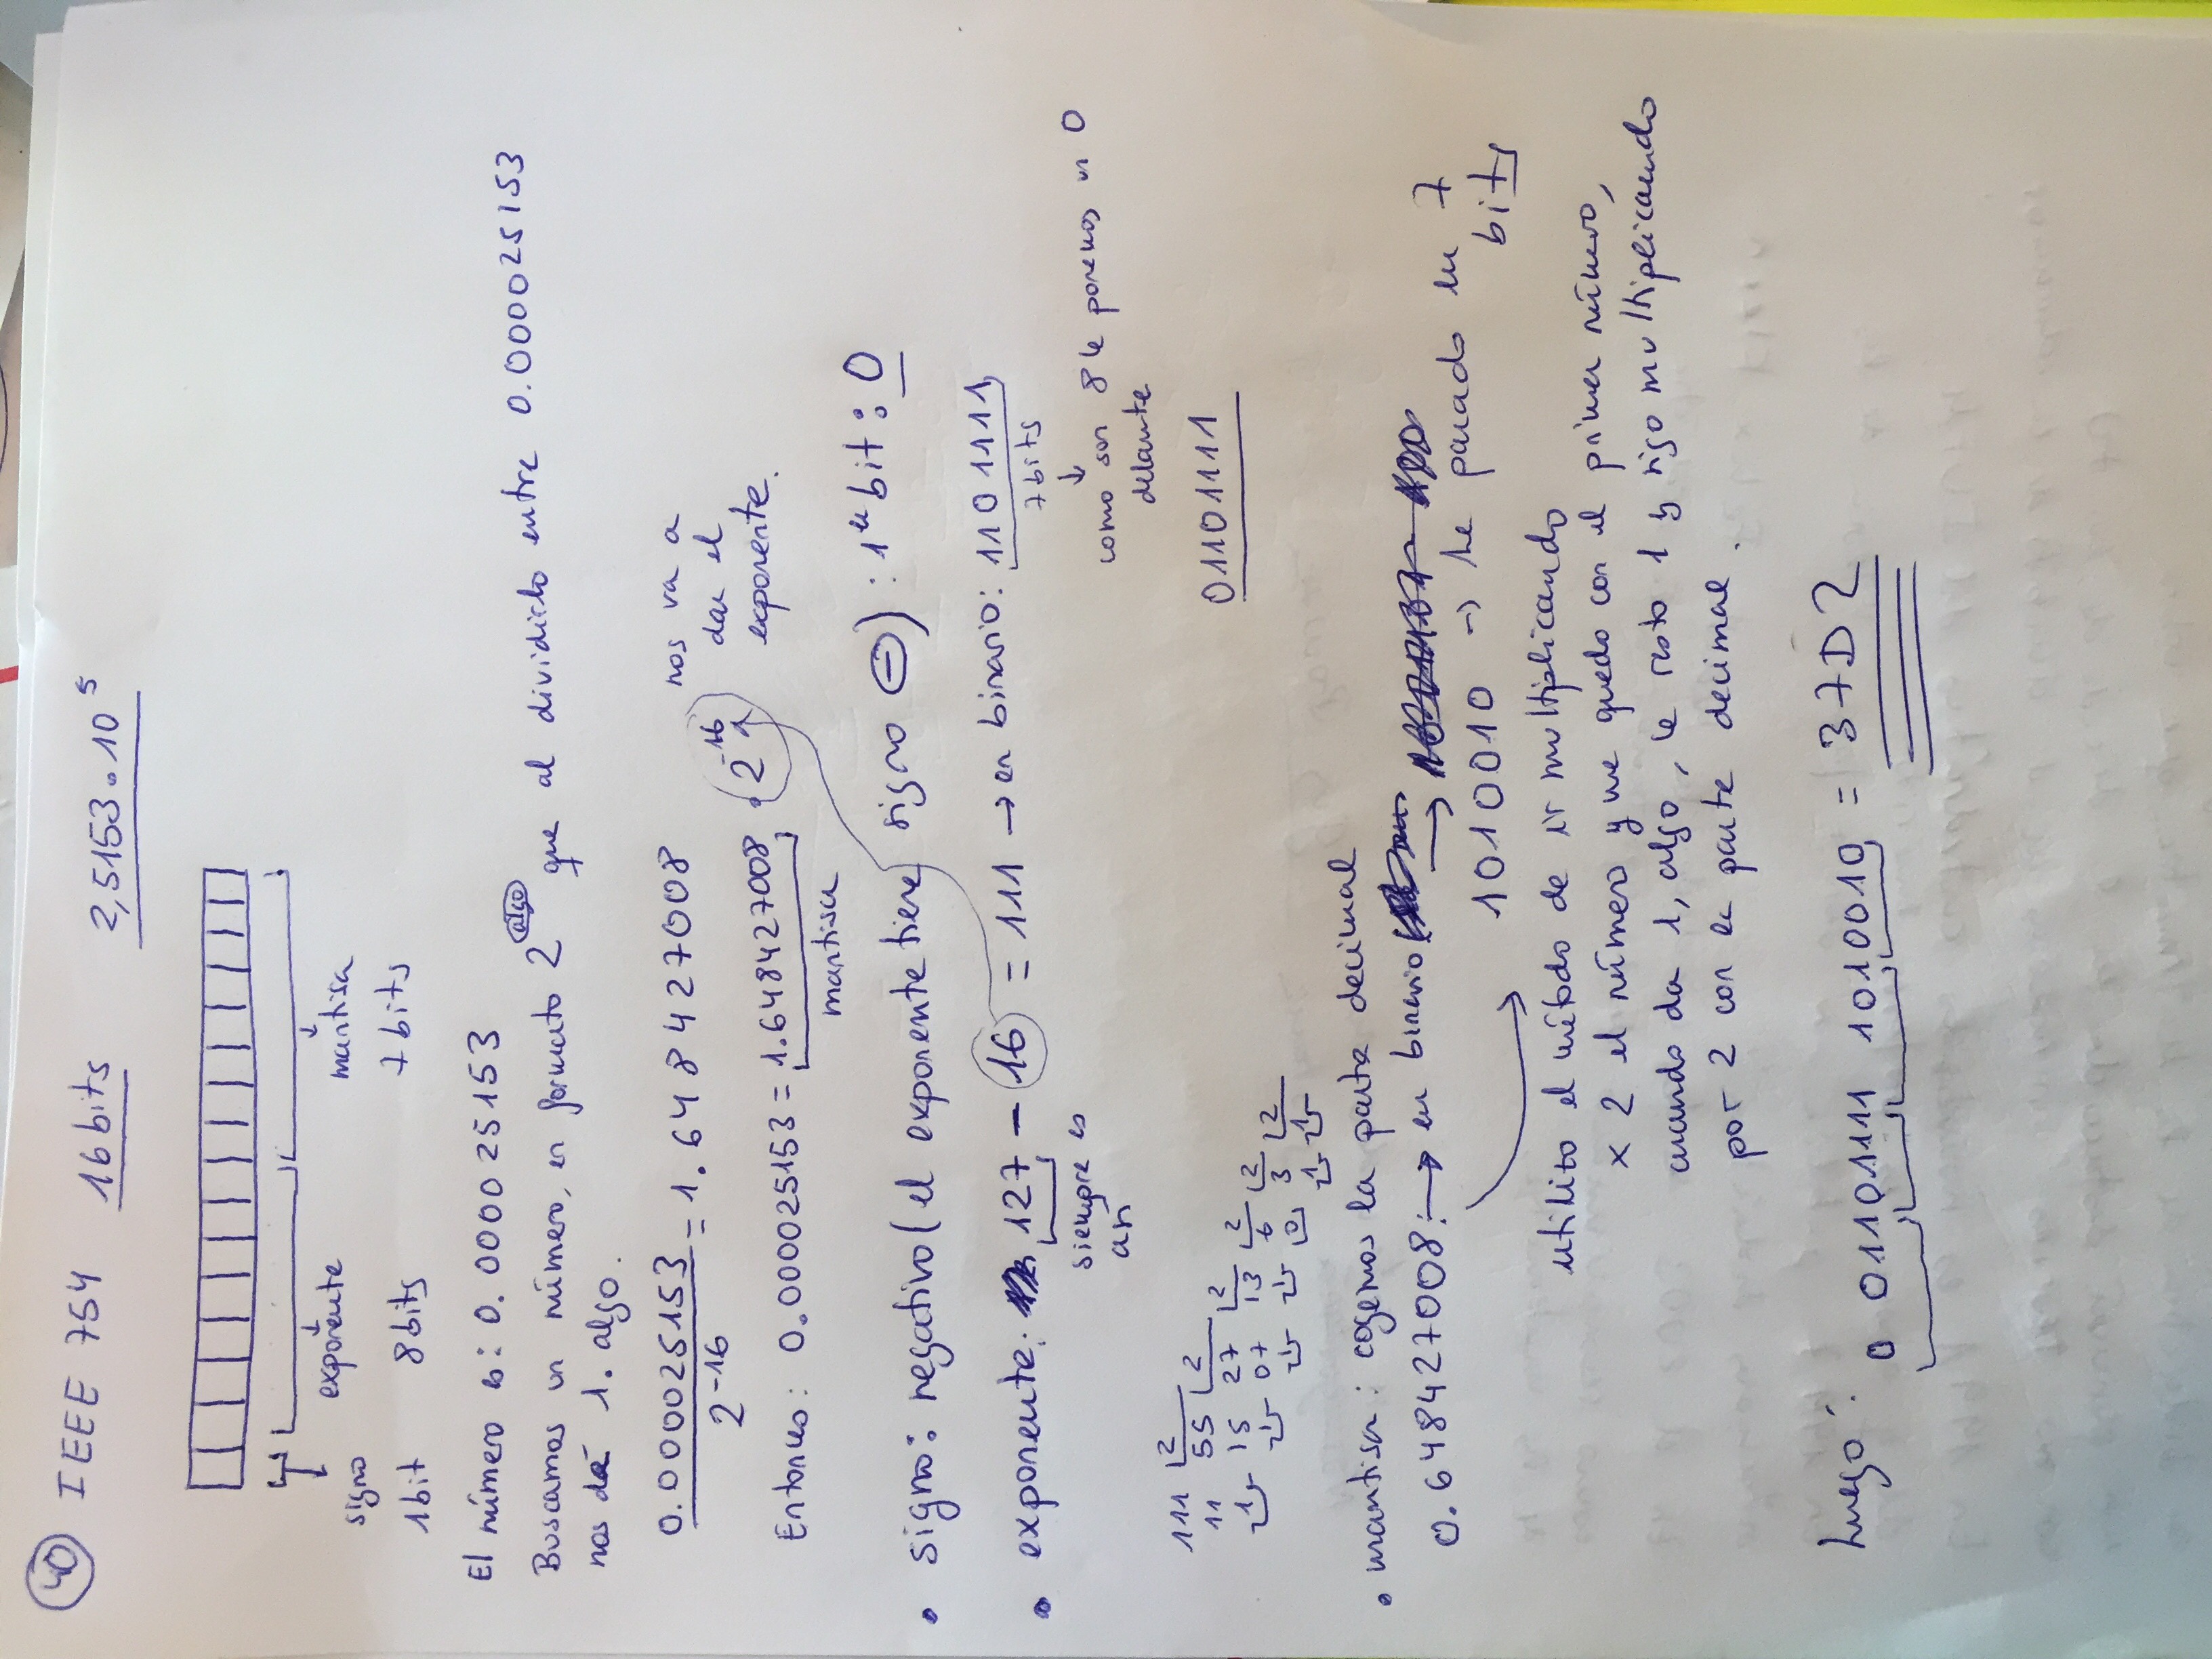 40 IEEE 754 16bits 2,5153.10⁵
signo exponente mantisa
1bit 8bits 7bits
El número es: 0.000025153
Buscamos un número, en formato 2^algo que al dividirlo entre 0.000025153
nos dé 1.algo.
0.000025153 / 2^-16 = 1.648427008
Entonces: 0.000025153 = 1.648427008 . (2^-16) nos va a dar el exponente.
mantisa
• signo: negativo (el exponente tiene signo ⊖) : 1er bit: 0
• exponente: 127 - 16 = 111 → en binario: 1101111
siempre es así
7bits
como son 8 le ponemos un 0 delante
01101111
111 |2
11 55 |2
1 15 27 |2
1 07 13 |2
1 1 6 |2
0 3 |2
1 1
• mantisa: cogemos la parte decimal
0.648427008: → en binario → 1010010 → he parado en 7 bits
utilizo el método de ir multiplicando
x 2 el número y me quedo con el primer número,
cuando da 1, algo, le resto 1 y sigo multiplicando
por 2 con la parte decimal.
Luego: 0 01101111 1010010 = 37D2